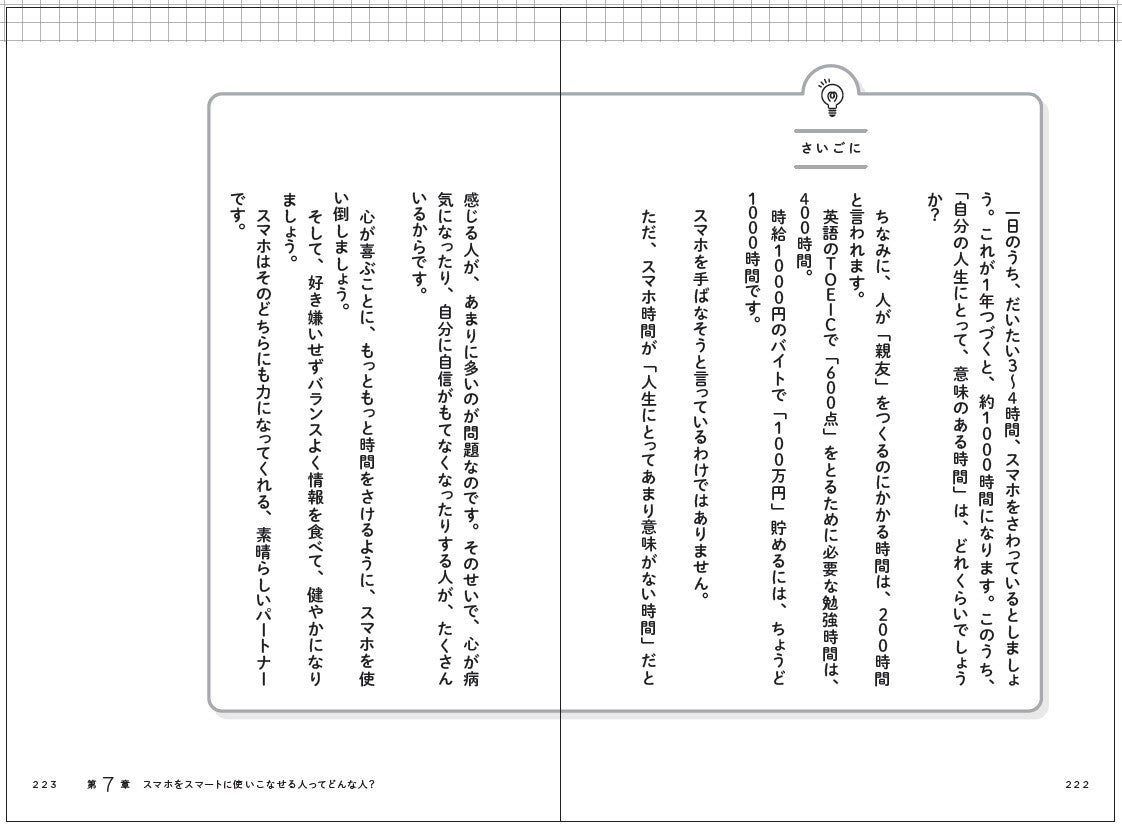 さいごに
一日のうち、だいたい3〜4時間、スマホをさわっているとしましょ
う。これが1年つづくと、約1000時間になります。このうち、
「自分の人生にとって、意味のある時間」は、どれくらいでしょう
か?
ちなみに、人が「親友」をつくるのにかかる時間は、200時間
と言われます。
英語のTOEICで「600点」をとるために必要な勉強時間は、
400時間。
時給1000円のバイトで「100万円」貯めるには、ちょうど
1000時間です。
スマホを手ばなそうと言っているわけではありません。
ただ、スマホ時間が「人生にとってあまり意味がない時間」だと
222
感じる人が、あまりに多いのが問題なのです。そのせいで、心が病
気になったり、自分に自信がもてなくなったりする人が、たくさん
いるからです。
心が喜ぶことに、もっともっと時間をさけるように、スマホを使
い倒しましょう。
そして、好き嫌いせずバランスよく情報を食べて、健やかになり
ましょう。
スマホはそのどちらにも力になってくれる、素晴らしいパートナー
です。
223 第7章 スマホをスマートに使いこなせる人ってどんな人?